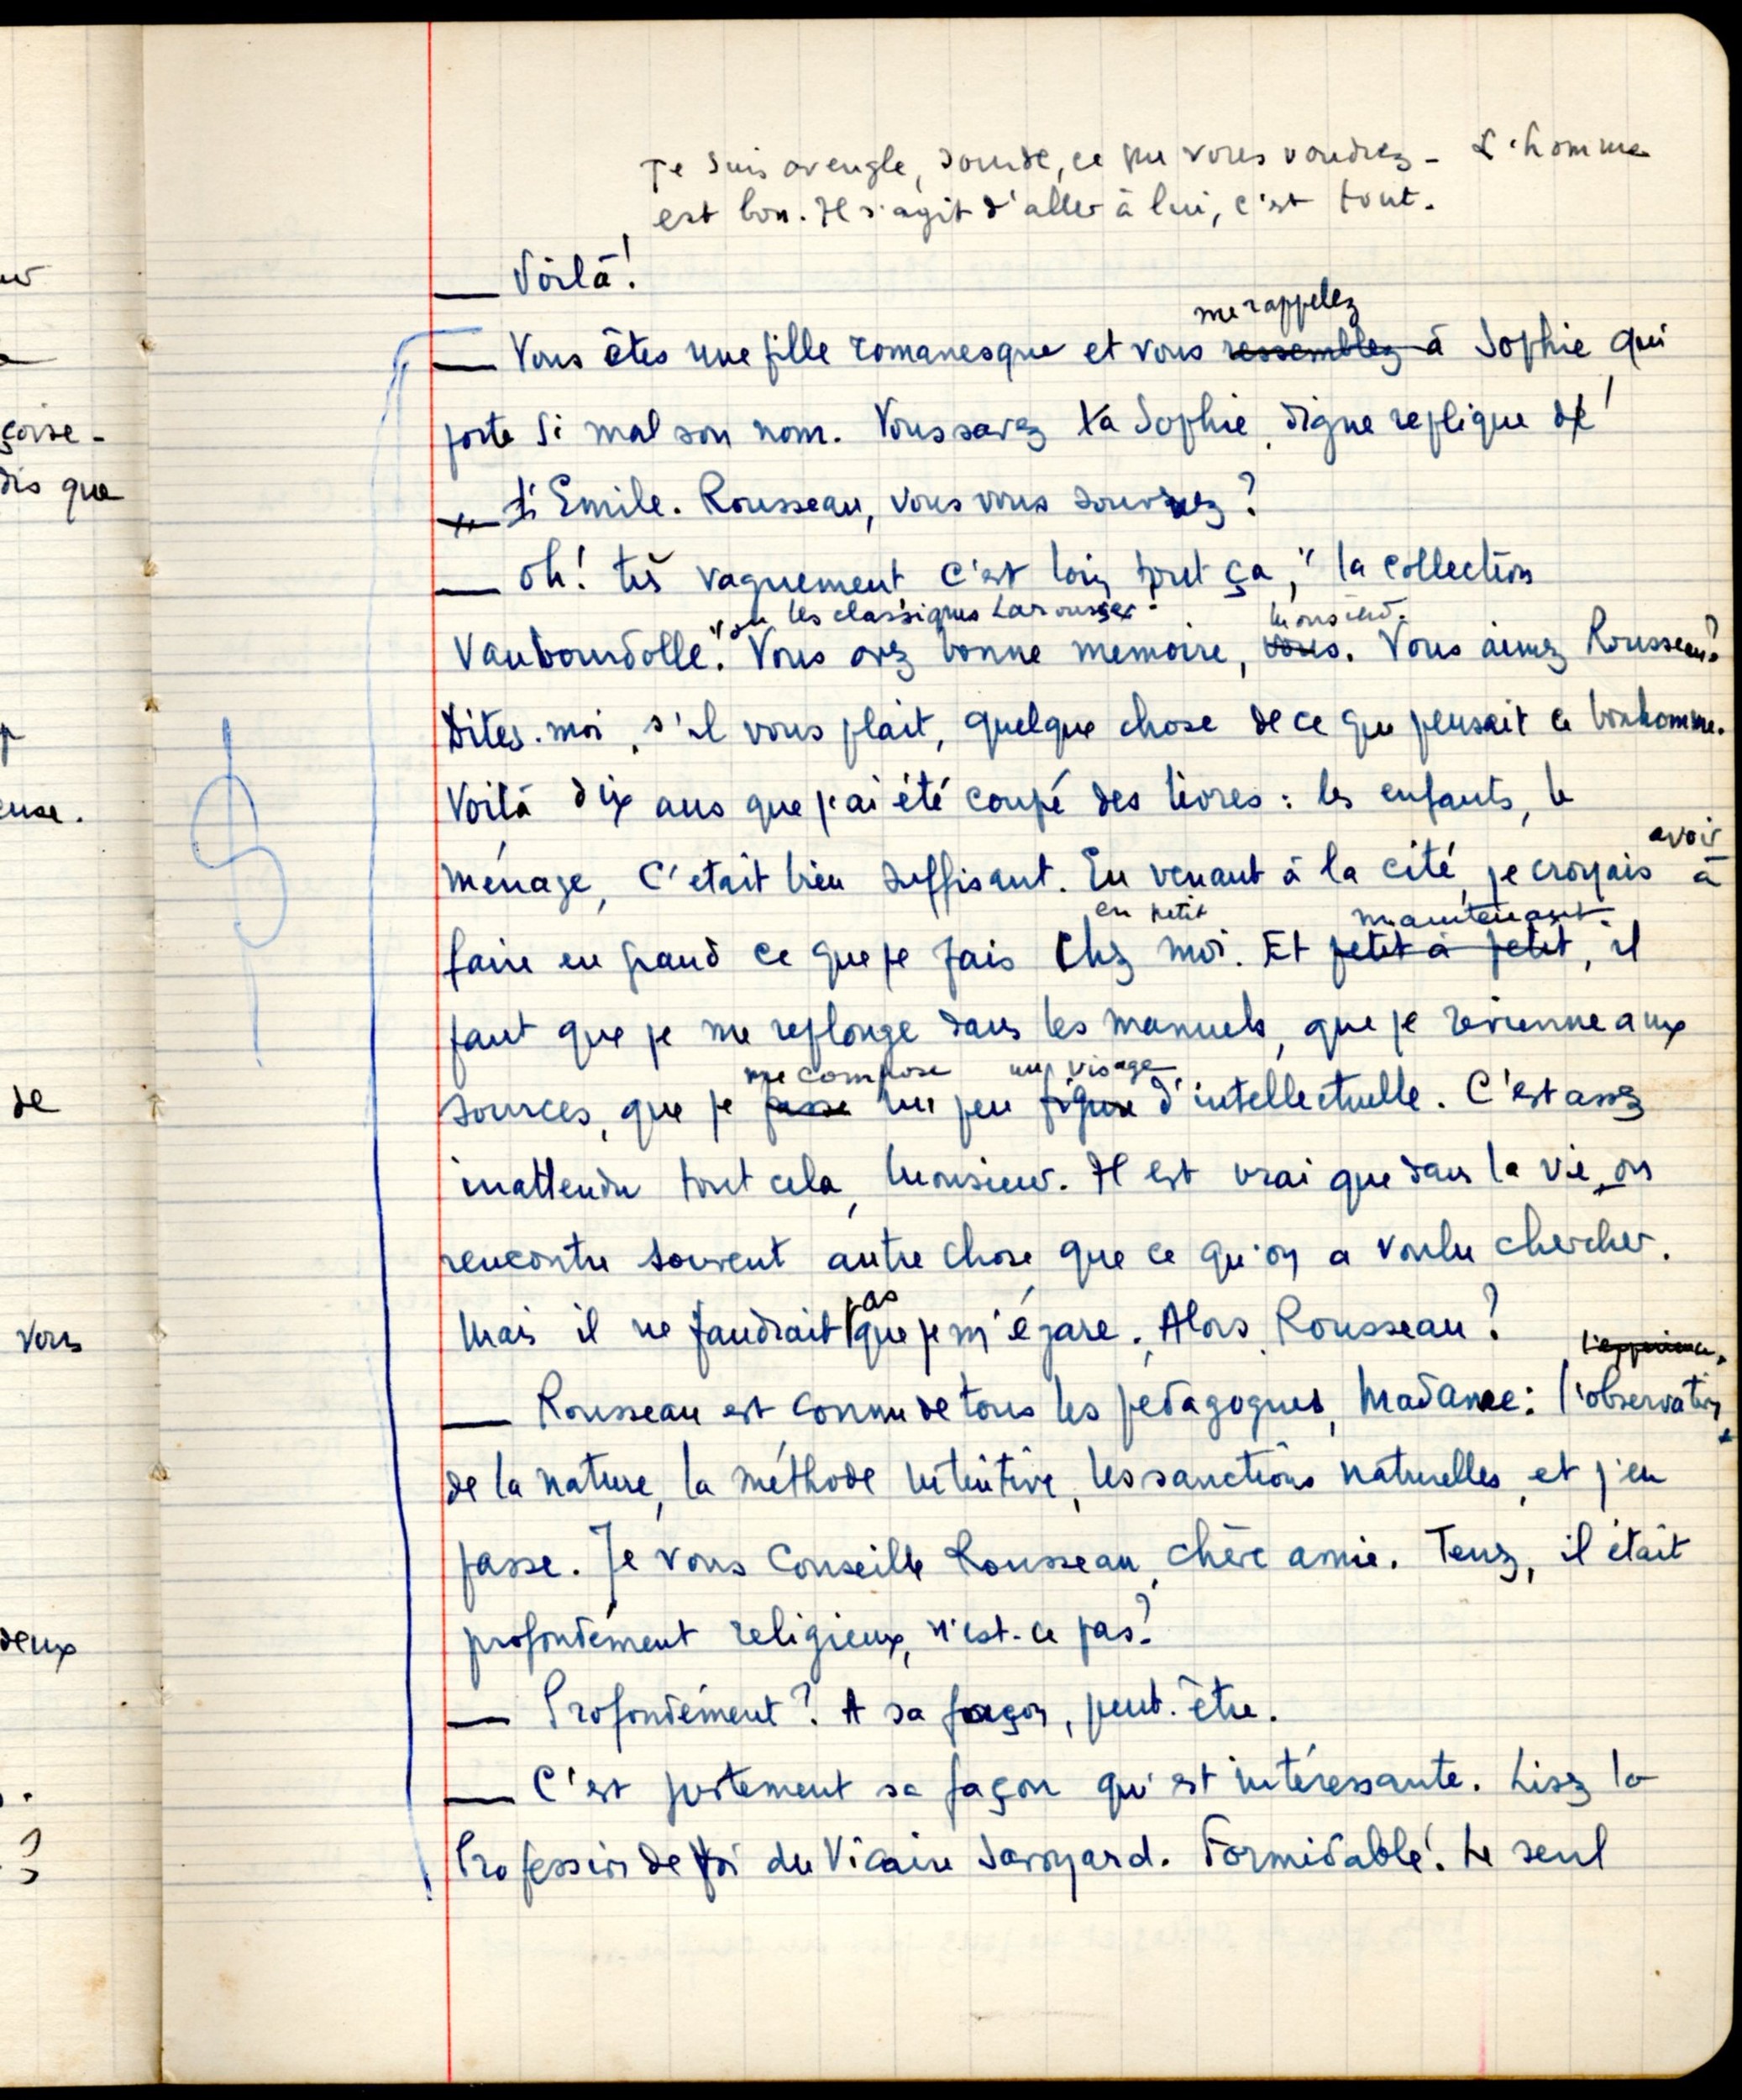 Je suis aveugle, sourde, ce que vous voudrez - L'homme
est bon. Il s'agit d'aller à lui, c'est tout.
— Voilà !
me rappelez
— Vous êtes une fille romanesque et vous ressemblez à Sophie qui
porte si mal son nom. Vous savez la Sophie, digne replique de
d'Emile. Rousseau, vous vous souvenez ?
— Oh ! très vaguement, c'est loin tout ça, "la collection
ou les classiques Larousse. Monsieur.
Vaubourdolle". Vous avez bonne memoire, vous. Vous aimez Rousseau ?
Dites-moi, s'il vous plait, quelque chose de ce que pensait ce bonhomme.
Voilà dix ans que j'ai été coupé des livres : les enfants, le
avoir
ménage, c'etait bien suffisant. En venant à la cité, je croyais à
en petit maintenant
faire en grand ce que je fais chez moi. Et petit à petit, il
faut que je me replonge dans les manuels, que je revienne aux
me compose un visage
sources, que je fasse un peu figure d'intellectuelle. C'est assez
inattendu tout cela, Monsieur. Il est vrai que dans la vie, on
rencontre souvent autre chose que ce qu'on a voulu chercher.
pas
Mais il ne faudrait que je m'égare. Alors, Rousseau ?
l'experience,
— Rousseau est connu de tous les pedagogues, Madame : l'observation
de la nature, la méthode intuitive, les sanctions naturelles, et j'en
passe. Je vous conseille Rousseau, chère amie. Tenez, il était
profondément religieux, n'est-ce pas ?
— Profondément ? A sa façon, peut-être.
— C'est justement sa façon qui est intéressante. Lisez la
Profession de foi du Vicaire Savoyard. Formidable ! Le seul
çoise -
dis que
euse.
de
vous
deux